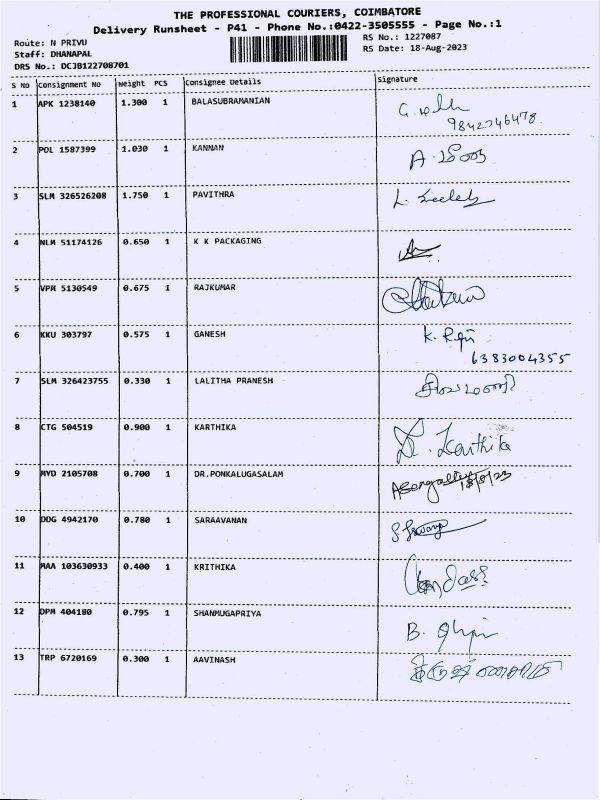 THE PROFESSIONAL COURIERS, COIMBATORE
Delivery Runsheet - P41 - Phone No.:0422-3505555 - Page No.:1
Route: N PRIVU
RS No.: 1227087
Staff: DHANAPAL
RS Date: 18-Aug-2023
DRS No.: DCJB122708701
S No Consignment No Weight PCS Consignee Details Signature
1 APK 1238140 1.300 1 BALASUBRAMANIAN
9842746478
2 POL 1587399 1.030 1 KANNAN A.
3 SLM 326526208 1.750 1 PAVITHRA L.
4 NLM 51174126 0.650 1 K K PACKAGING
5 VPM 5130549 0.675 1 RAJKUMAR
6 KKU 303797 0.575 1 GANESH K.
6383004355
7 SLM 326423755 0.330 1 LALITHA PRANESH சிவமணி
8 CTG 504519 0.900 1 KARTHIKA Karthika
9 MYD 2105708 0.700 1 DR.PONKALUGASALAM 18/8/23
10 DDG 4942170 0.780 1 SARAAVANAN
11 MAA 103630933 0.400 1 KRITHIKA
12 DPM 404180 0.795 1 SHANMUGAPRIYA B.
13 TRP 6720169 0.300 1 AAVINASH